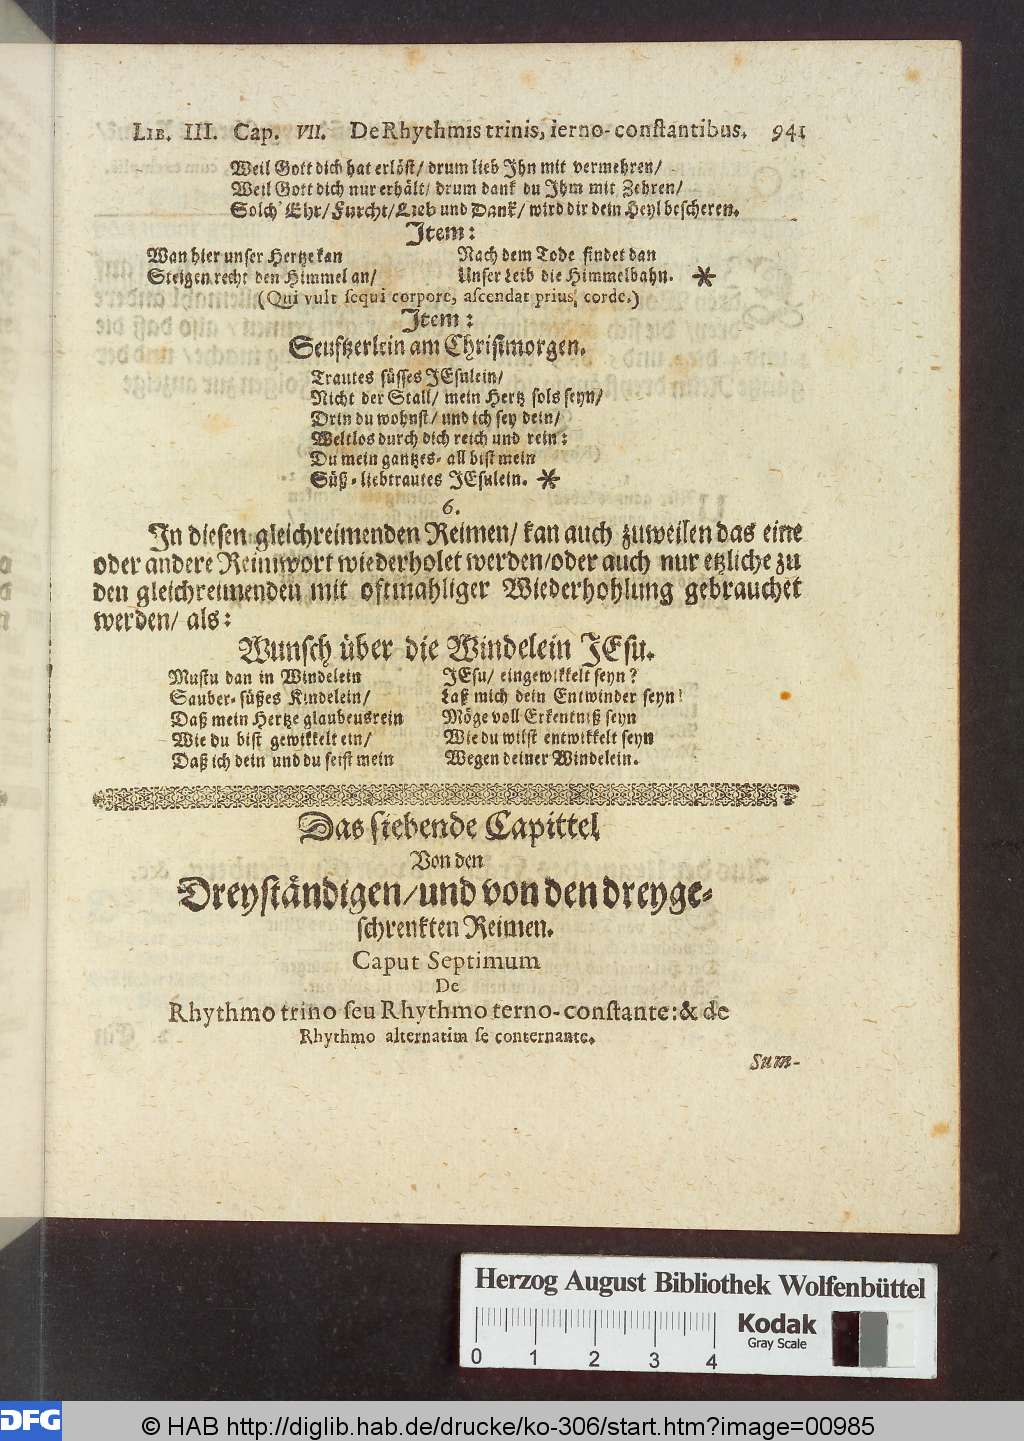 LIB. III. Cap. VII. De Rhythmis trinis, terno-constantibus. 941
Weil Gott dich hat erlöst/ drum lieb Ihn mit vermehren/
Weil Gott dich nur erhält/ drum dank du Ihm mit Zehren/
Solch' Ehr/ Furcht/ Lieb und Dank/ wird dir dein Heyl bescheren.
Item:
Wan hier unser Hertze kan
Steigen recht den Himmel an/
Nach dem Tode findet dan
Unser Leib die Himmelbahn. *
(Qui vult sequi corpore, ascendat prius corde.)
Item:
Seuftzerlein am Christmorgen.
Trautes süsses JEsulein/
Nicht der Stall/ mein Hertz sols seyn/
Drin du wohnst/ und ich sey dein/
Weltlos durch dich reich und rein:
Du mein gantzes-all bist mein
Süß-liebtrautes JEsulein. *
6.
In diesen gleichreimenden Reimen/ kan auch zuweilen das eine
oder andere Reimwort wiederholet werden/ oder auch nur etzliche zu
den gleichreimenden mit oftmahliger Wiederhohlung gebrauchet
werden/ als:
Wunsch über die Windelein JEsu.
Mustu dan in Windelein
Sauber-süßes Kindelein/
Daß mein Hertze glaubensrein
Wie du bist gewikkelt ein/
Daß ich dein und du seist mein
JEsu/ eingewikkelt seyn?
Laß mich dein Entwinder seyn!
Möge voll Erkentniß seyn
Wie du wilst entwikkelt seyn
Wegen deiner Windelein.
Das siebende Capittel
Von den
Dreyständigen/ und von den dreyge-
schrenkten Reimen.
Caput Septimum
De
Rhythmo trino seu Rhythmo terno-constante: & de
Rhythmo alternatim se conternante.
Sum-
Herzog August Bibliothek Wolfenbüttel
Kodak
Gray Scale
0 1 2 3 4
DFG
© HAB http://diglib.hab.de/drucke/ko-306/start.htm?image=00985